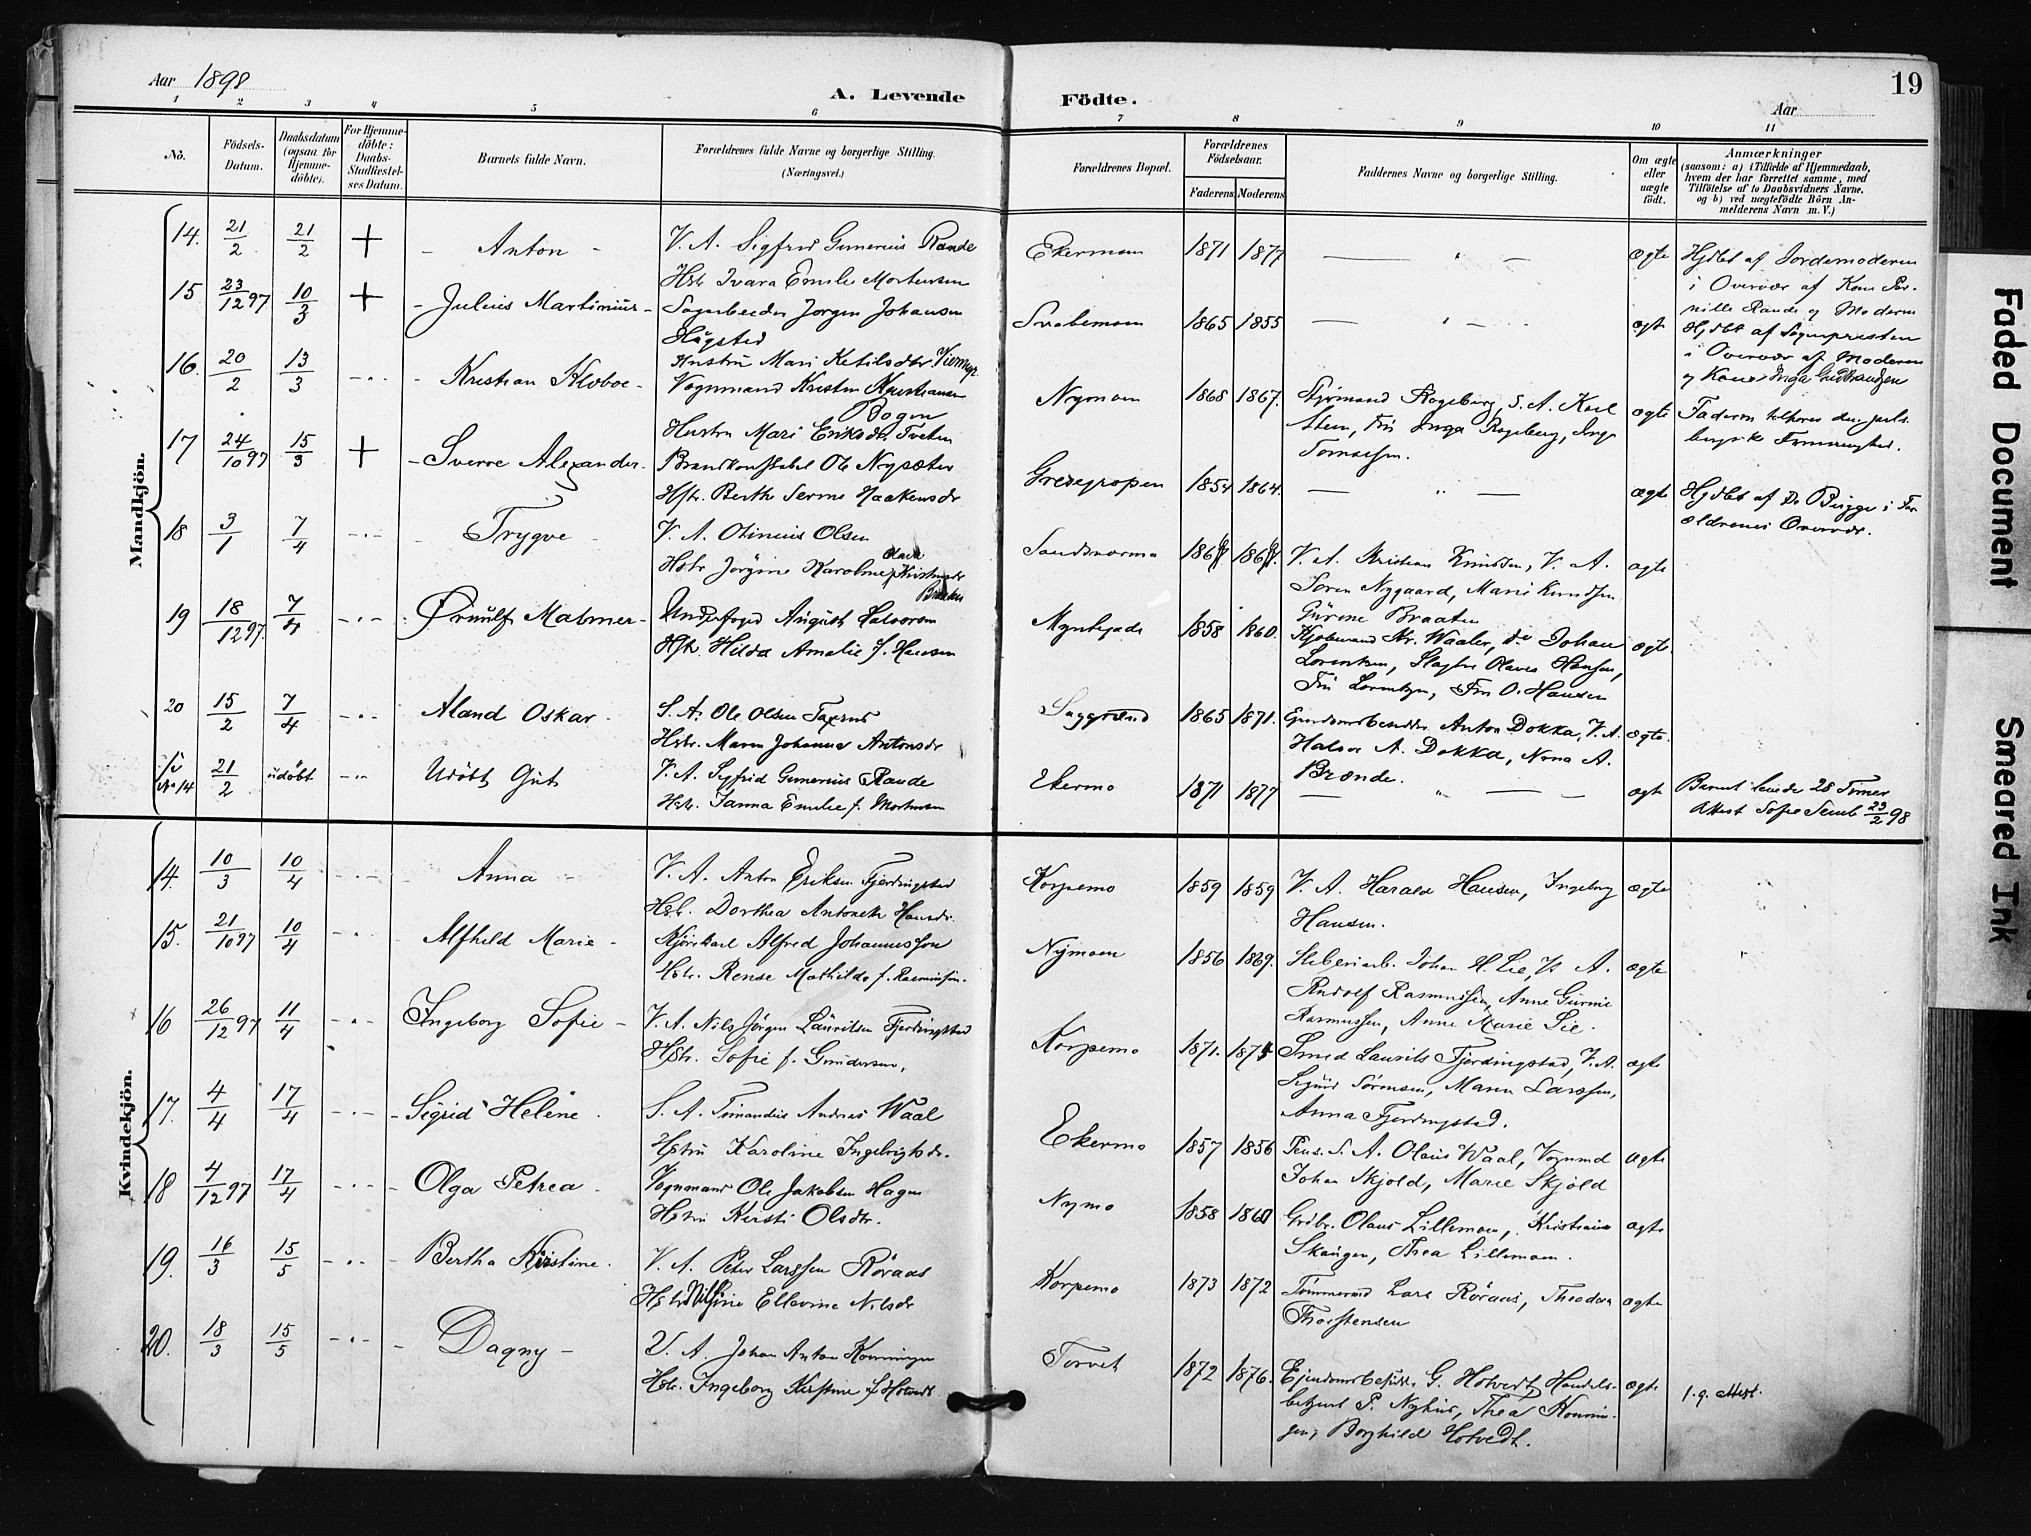 Aar 1898
A. Levende Födte.
19
Aar
1 2 3 4 5 6 7 8 9 10 11
Nò.
Födsels-Datum.
Daabsdatum (ogsaa for Hjemme-döbte).
For Hjemme-döbte: Daabs-Stadfæstel-ses Datum.
Barnets fulde Navn.
Forældrenes fulde Navne og borgerlige Stilling. (Næringsvei.)
Forældrenes Bopæl.
Forældrenes Födselsaar.
Faderens Moderens
Faddernes Navne og borgerlige Stilling.
Om ægte eller uægte födt.
Anmærkninger
(saasom: a) i Tilfælde af Hjemmedaab,
hvem der har forrettet samme, med
Tilföielse af to Daabsvidners Navne.
og b) ved uægtefödte Börn An-
melderens Navn m. V.)
Mandkjön.
14. 21/2 21/2 + Anton
V. A. Sigfrid Gunerius Rande
Hstr Ivara Emilie Mortensen
Ekermoen 1871 1877 ægte
Hjdbt af Jordemoderen
i Overvær af Kone Per-
nille Rande og Moderen
15. 23/12 97 10/3 + Julius Martinius
Sagarbeider Jørgen Johansen
Høgsted
Hustru Mari Ketilsdtr Viermyr
1865 1855 ægt
Hjdbt af Sognepresten
i Overvær af Moderen
og Kone Inga Gudbrandsen
16. 20/2 13/3 Kristian Kloboe
Vognmand Kristen Kristiansen
Bogen
Hustru Mari Eriksdtr Tveten
Nymoen 1868 1867.
Styrmand Rogeberg, S. A. Karl
Steen, Fru Inga Rogeberg, Inga
Tomassen.
ægte
17 24/10 97 15/3 + Sverre Alexander
Brandkonstabel Ole Nysæter
Hstr. Berthe Serine Haakensdr
1854 1864. ægte
Hjdbt af Dr Bugge i For
ældrenes Overvær.
18 3/1 7/4 Trygve
V. A. Otinius Olsen
Hstr Jørgine Karoline Olava Kristensdr
Braaten
Sandsværmo
V. A. Kristian Knudsen, V. A.
Søren Nygaard, Marie Knudsen
Gurine Braaten
ægte
19 18/12 97 7/4 Ørnulf Malmer
Underfoged August Halvorsen
Hstr. Hilda Amalie f. Hansen
Myntgade 1858 1860.
Kjøbmand Kr. Waaler, do Johan
Lorentzen, Slagter Olaves Hansen,
Fru Lorentzen, Fru O. Hansen
ægte.
20 15/2 7/4 Aland Oskar
S. A. Ole Olsen
Hstr. Maren Johanne Antonsdr
Saggrænd 1865 1871.
Eiendomsbesidder Anton Dokka, V. A.
Halvor A. Dokka, Nona A.
Brænde.
ægte.
s/v No 14 21/2 udöbt Udöbt Gut
V. A. Sigfrid Gunerius Rande
Hstr. Ivanna Emilie f. Mortensen
Ekermo 1871 1877 ægte
Barnet levede 28 Timer
Attest Sofie Semb 23/2 98
Kvindekjön.
14. 10/3 10/4 Anna
V. A. Anton Eriksen Fjerdingstad
Hstr. Dorthea Antonette Hansdr.
Korpemo 1859 1859
V. A. Harald Hansen, Ingeborg
Hansen.
ægte
15. 21/10 97 10/4 Alfhild Marie
Kjørekarl Alfred Johannessen
Hstr. Rense Mathilde f. Rasmussen.
Nymoen 1856 1869.
Sliberiarb. Johan H. Lie, V. A.
Rudolf Rasmussen, Anne Gurine
Rasmussen, Anne Marie Lie.
ægte
16 26/12 97 11/4 Ingeborg Sofie
V. A. Nils Jörgen Lauritsen Fjerdingstad
Hstr. Sofie f. Gundersen,
Korpemo 1871. 1875
Smed Laurits Fjerdingstad, V. A.
Sigurd Sørensen, Maren Larssen,
Anna Fjerdingstad.
ægte
17. 4/4 17/4 Sigrid Helene
S. A. Fernandus Andreas Waal
Hstru Karoline Ingebrigtsdr.
Ekermo 1857 1856
Pens. S. A. Olaus Waal, Vognmd
Johan Skjold, Marie Skjöld
ægte
18 4/12 97 17/4 Olga Petrea
Vognmand Ole Jakobsen Hagen
Hstru Kirsti Olsdtr.
Nymo 1858 1860
Grdbr. Olaus Lillemoen, Kristiane
Skaugen, Thea Lillemoen.
ægte
19. 16/3 15/5 Bertha Kirstine
V. A. Peter Larssen Röraas
Hstr Nilsine Ellevine Nilsdr
Korpemo 1873 1872
Tömmermd Lars Röraas, Theodora
Thorstensen
ægte
20. 18/3 15/5 Dagny
V. A. Johan Anton Korningen
Hstr. Ingeborg Kirstine f. Hotvedt
Torvet 1872 1876.
Ejendomsbesidder G. Hotvedt, Handels-
betjent P. Nyhus, Thea Korning-
gen, Borghild Hotvedt.
ægte
l. q. Attest.
Faded Document
Smeared Ink